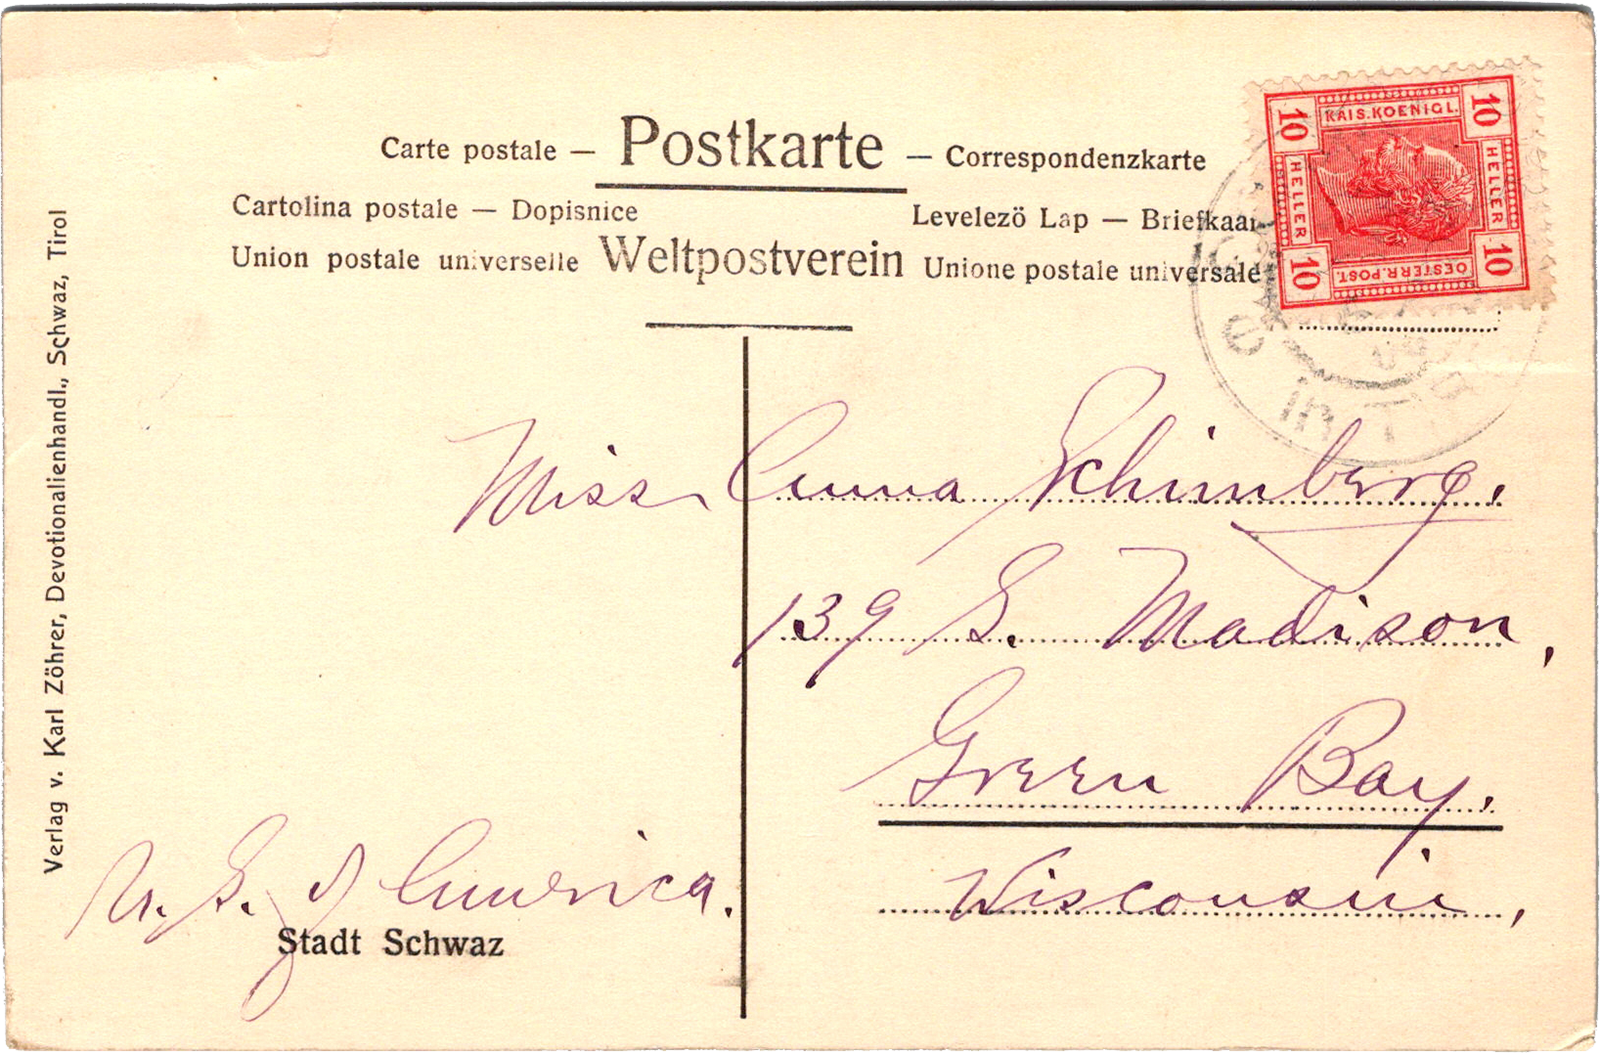 Carte postale — Postkarte — Correspondenzkarte
Cartolina postale — Dopisnice Levelezö Lap — Briefkaar
Union postale universelle Weltpostverein Unione postale universale
10 KAIS.KOENIGL. 10
HELLER HELLER
10 OESTERR.POST. 10
in
Miss Anna Schimberg.
139 S. Madison,
Green Bay.
Wisconsin,
U. S. of America.
Stadt Schwaz
Verlag v. Karl Zöhrer, Devotionalienhandl., Schwaz, Tirol